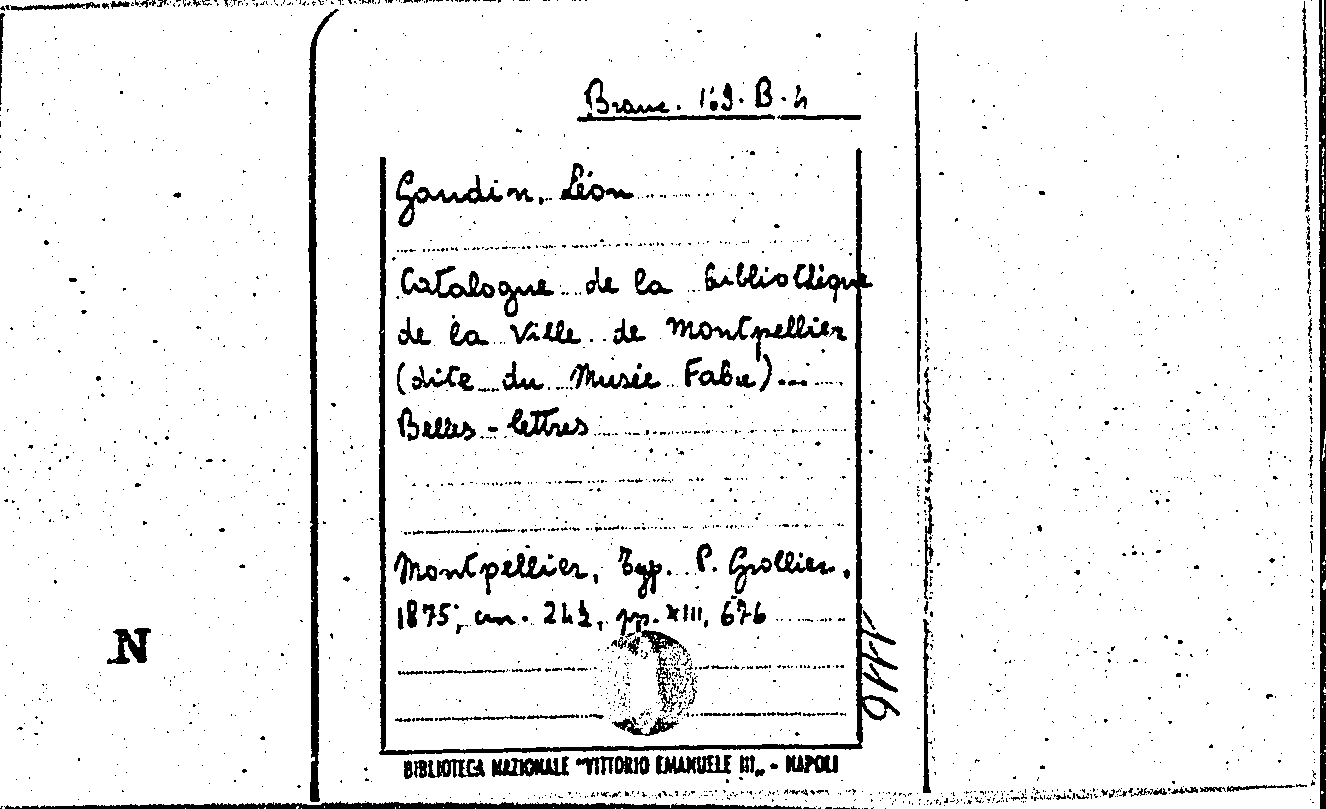 Branc. 169. B. 4
Gaudin, Léon
Catalogue de la bibliothèque
de la Ville de Montpellier
(dite du Musée Fabre)...
Belles-lettres
Montpellier, Typ. P. Grollier,
1875; cm. 24½, pp. XIII, 676
N
BIBLIOTECA NAZIONALE "VITTORIO EMANUELE III„ - NAPOLI